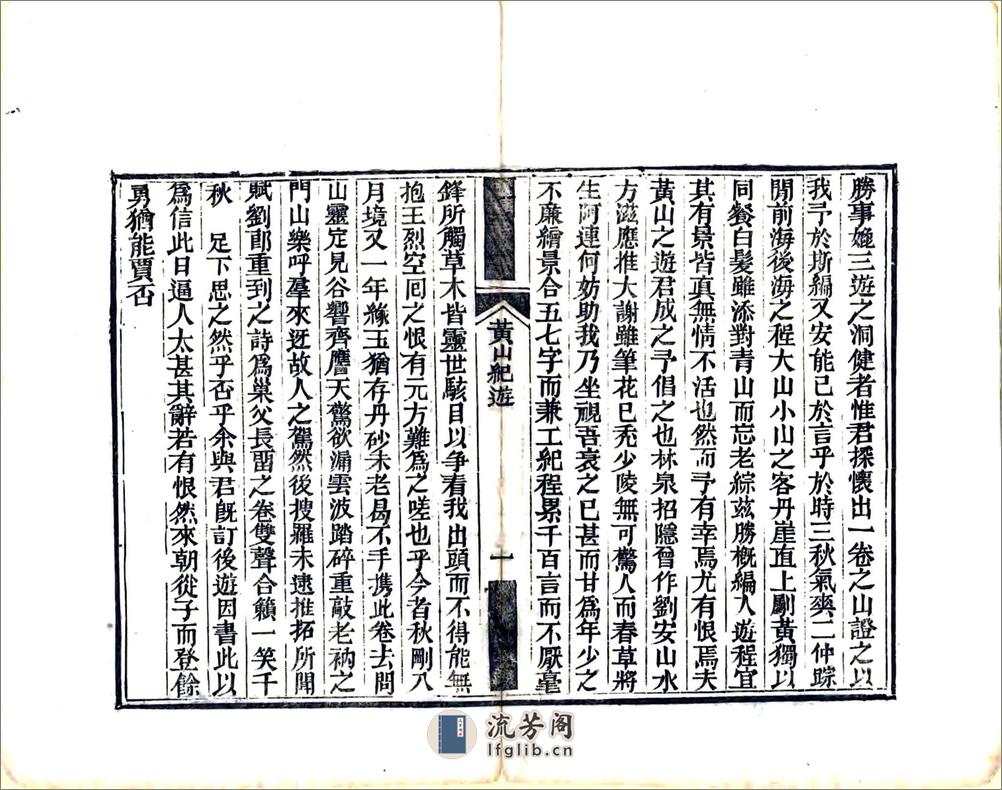 勝事媲三遊之洞健者惟君探懷出一卷之山證之以
我予於斯編又安能已於言乎於時三秋氣爽二仲踪
閒前海後海之程大山小山之客丹崖直上劚黃獨以
同餐白髮雖添對青山而忘老綜茲勝概編入遊程宜
其有景皆真無情不活也然而予有幸焉尤有恨焉夫
黃山之遊君成之予倡之也林泉招隱曾作劉安山水
方滋應推大謝雖筆花已禿少陵無可驚人而春草將
生阿連何妨助我乃坐視吾衰之已甚而甘為年少之
不廉繪景合五七字而兼工紀程累千百言而不厭毫
黃山紀遊
一
鋒所觸草木皆靈世駭目以爭看我出頭而不得能無
抱王烈空囘之恨有元方難為之嗟也乎今者秋剛八
月境又一年緣玉猶存丹砂未老曷不手携此卷去問
山靈定見谷響齊譍天驚欲漏雲波踏碎重敲老衲之
門山樂呼羣來迓故人之駕然後搜羅未逮推拓所聞
賦劉郎重到之詩為巢父長留之卷雙聲合籟一笑千
秋　足下思之然乎否乎余與君既訂後遊因書此以
為信此日逼人太甚其辭若有恨然來朝從子而登餘
勇猶能賈否
流芳阁
lfglib.cn